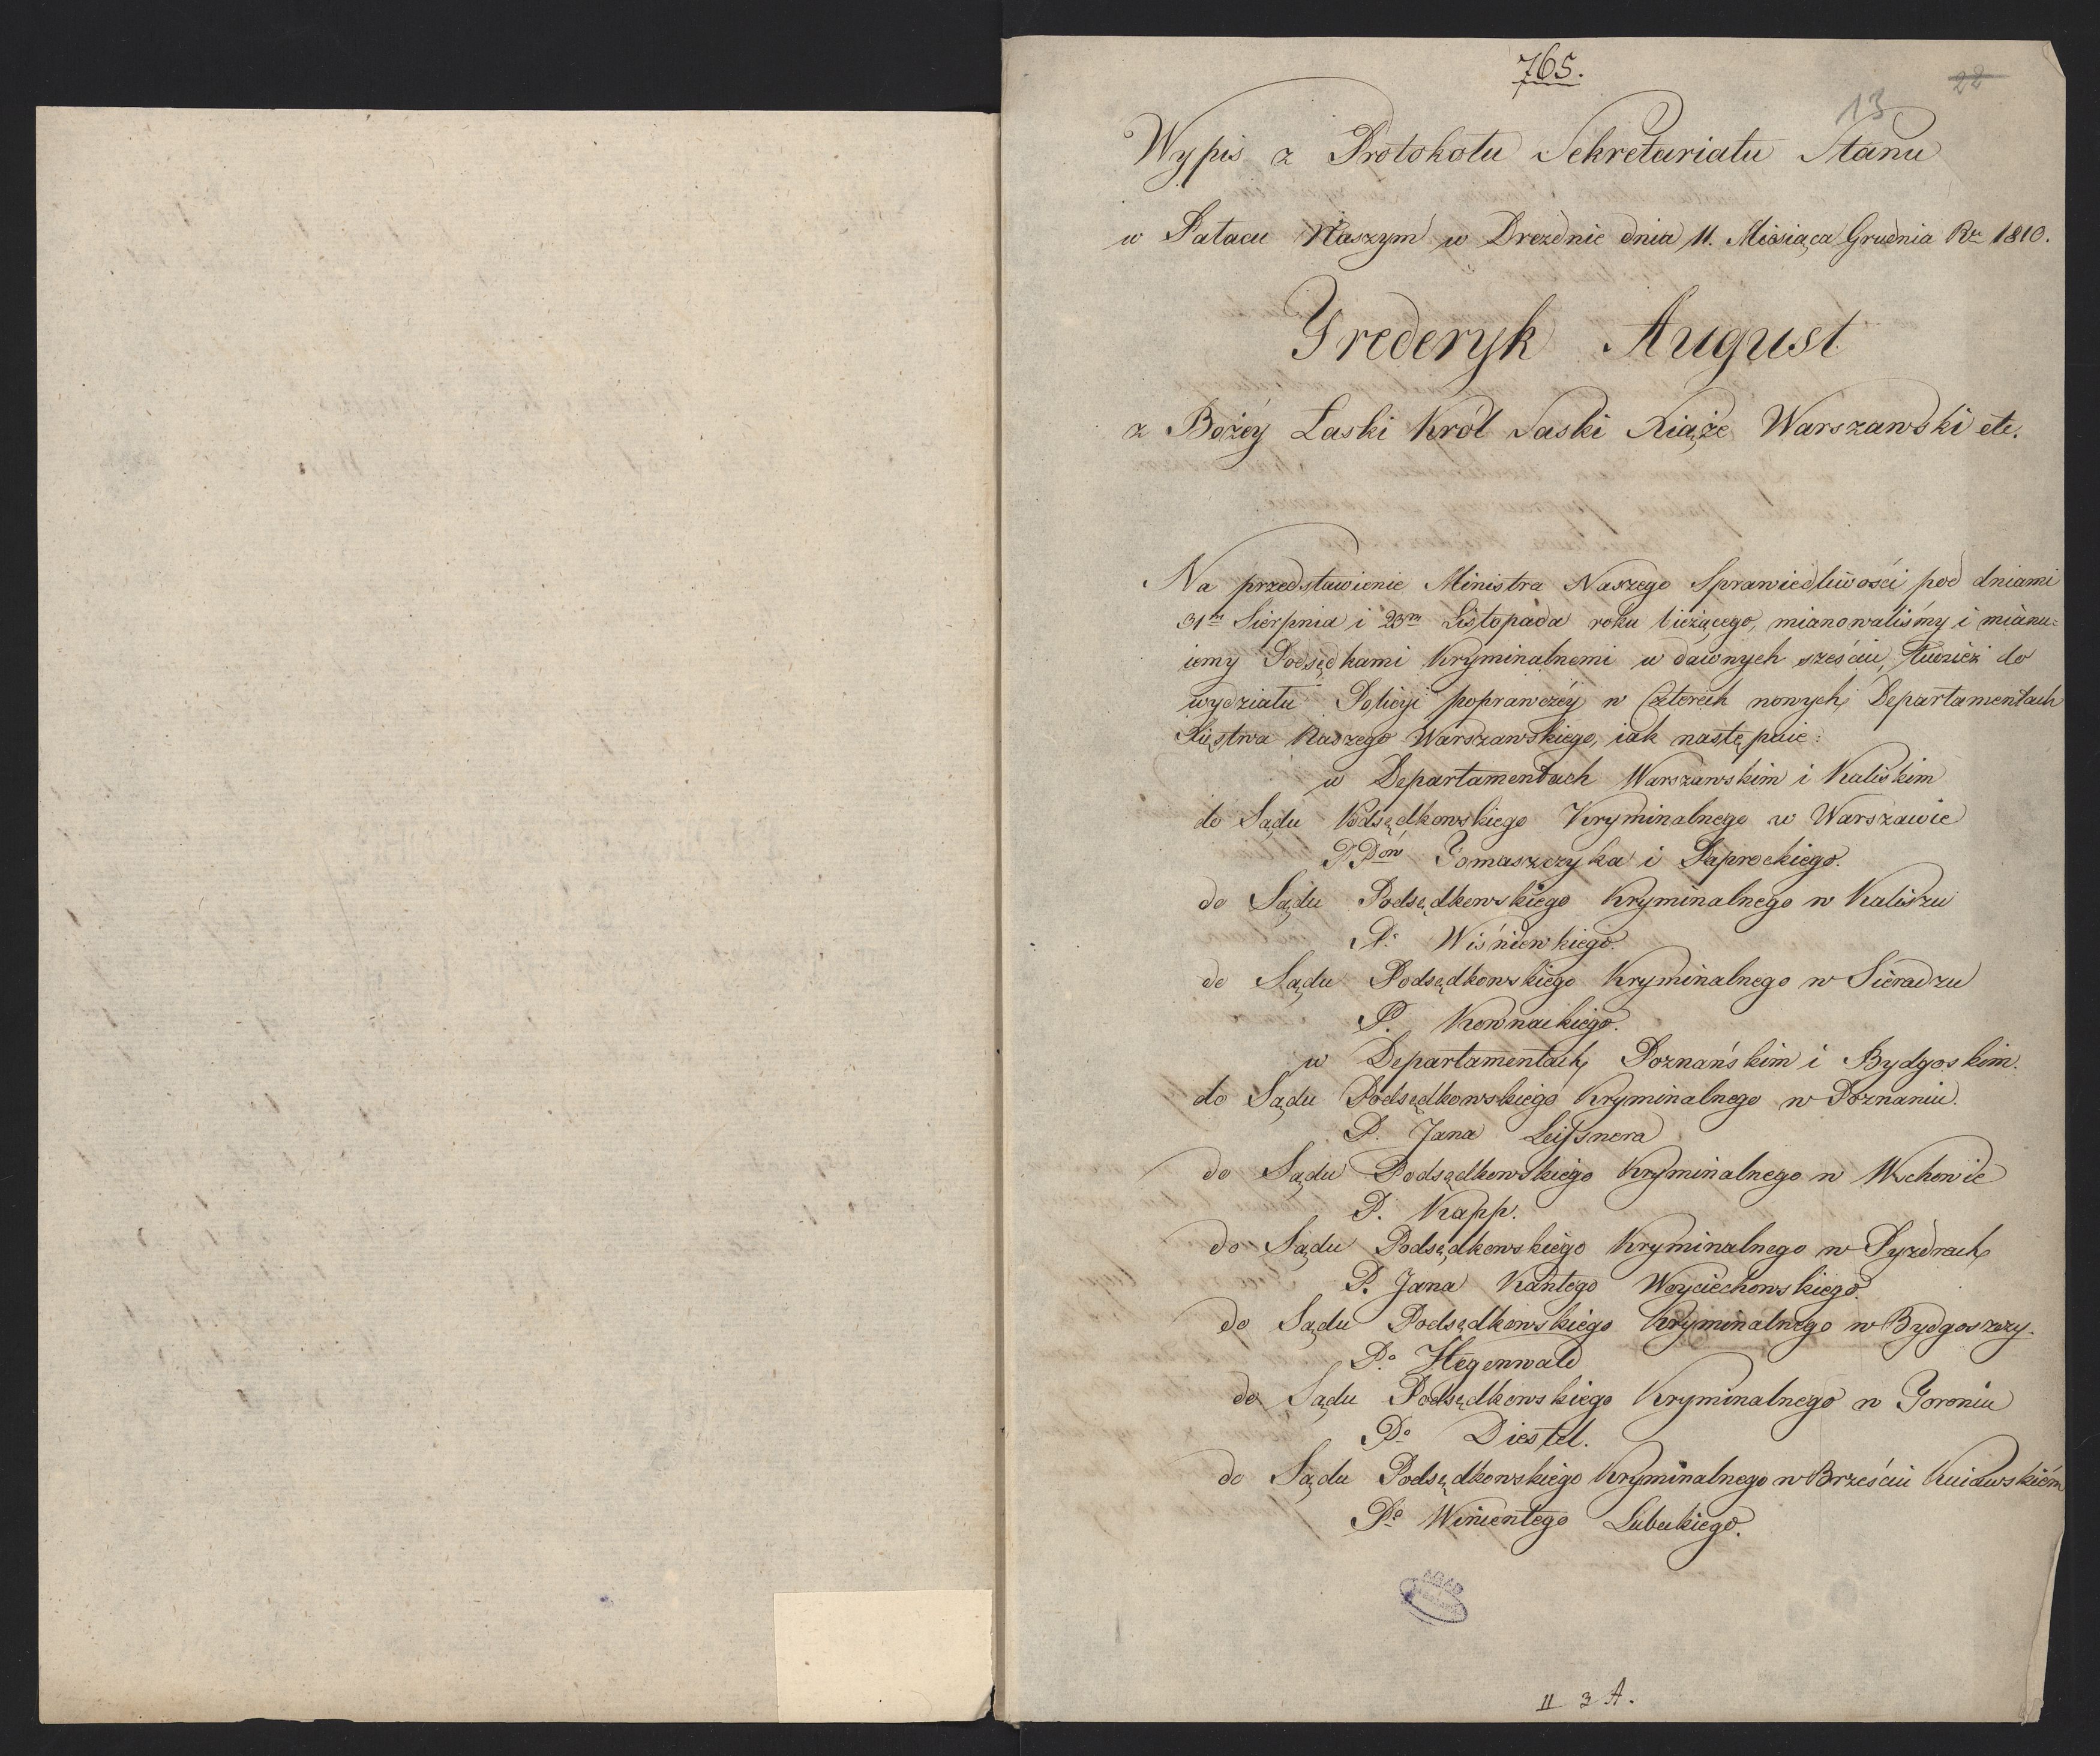 765.
22
13
Wypis z Protokołu Sekretariatu Stanu
w Pałacu Naszym w Dreźdnie dnia 11. Miesiąca Grudnia Rku 1810.
Fryderyk August
z Bożéy Łaski Król Saski Xiąże Warszawski etc.
Na przedstawienie Ministra Naszego Sprawiedliwości pod dniami
31m Sierpnia i 23m Listopada roku bieżącego, mianowaliśmy i mianu=
iemy Podsędkami Kryminalnemi w dawnych sześciu, tudzież do
wydziału Policyi poprawczéy w Czterech nowych Departamentach
Xięstwa Naszego Warszawskiego, iak następuie:
w Departamentach Warszawskim i Kaliskim
do Sądu Podsędkowskiego Kryminalnego w Warszawie
PPów Tomaszczyka i Paprockiego.
do Sądu Podsędkowskiego Kryminalnego w Kaliszu
P. Wiśniewkiego.
do Sądu Podsędkowskiego Kryminalnego w Sieradzu
P. Kownackiego.
w Departamentach Poznańskim i Bydgoskim.
do Sądu Podsędkowskiego Kryminalnego w Poznaniu.
P. Jana Leifsnera
do Sądu Podsędkowskiego Kryminalnego w Wschowie
P. Kapp.
do Sądu Podsędkowskiego Kryminalnego w Pyzdrach
P. Jana Kantego Woyciechowskiego.
do Sądu Podsędkowskiego Kryminalnego w Bydgoszczy.
P. Hegenwald
do Sądu Podsędkowskiego Kryminalnego w Toroniu
P. Diestel.
do Sądu Podsędkowskiego Kryminalnego w Brześciu Kuiawskiém
P. Wincentego Lubeckiego.
AGAD
II 3 A.